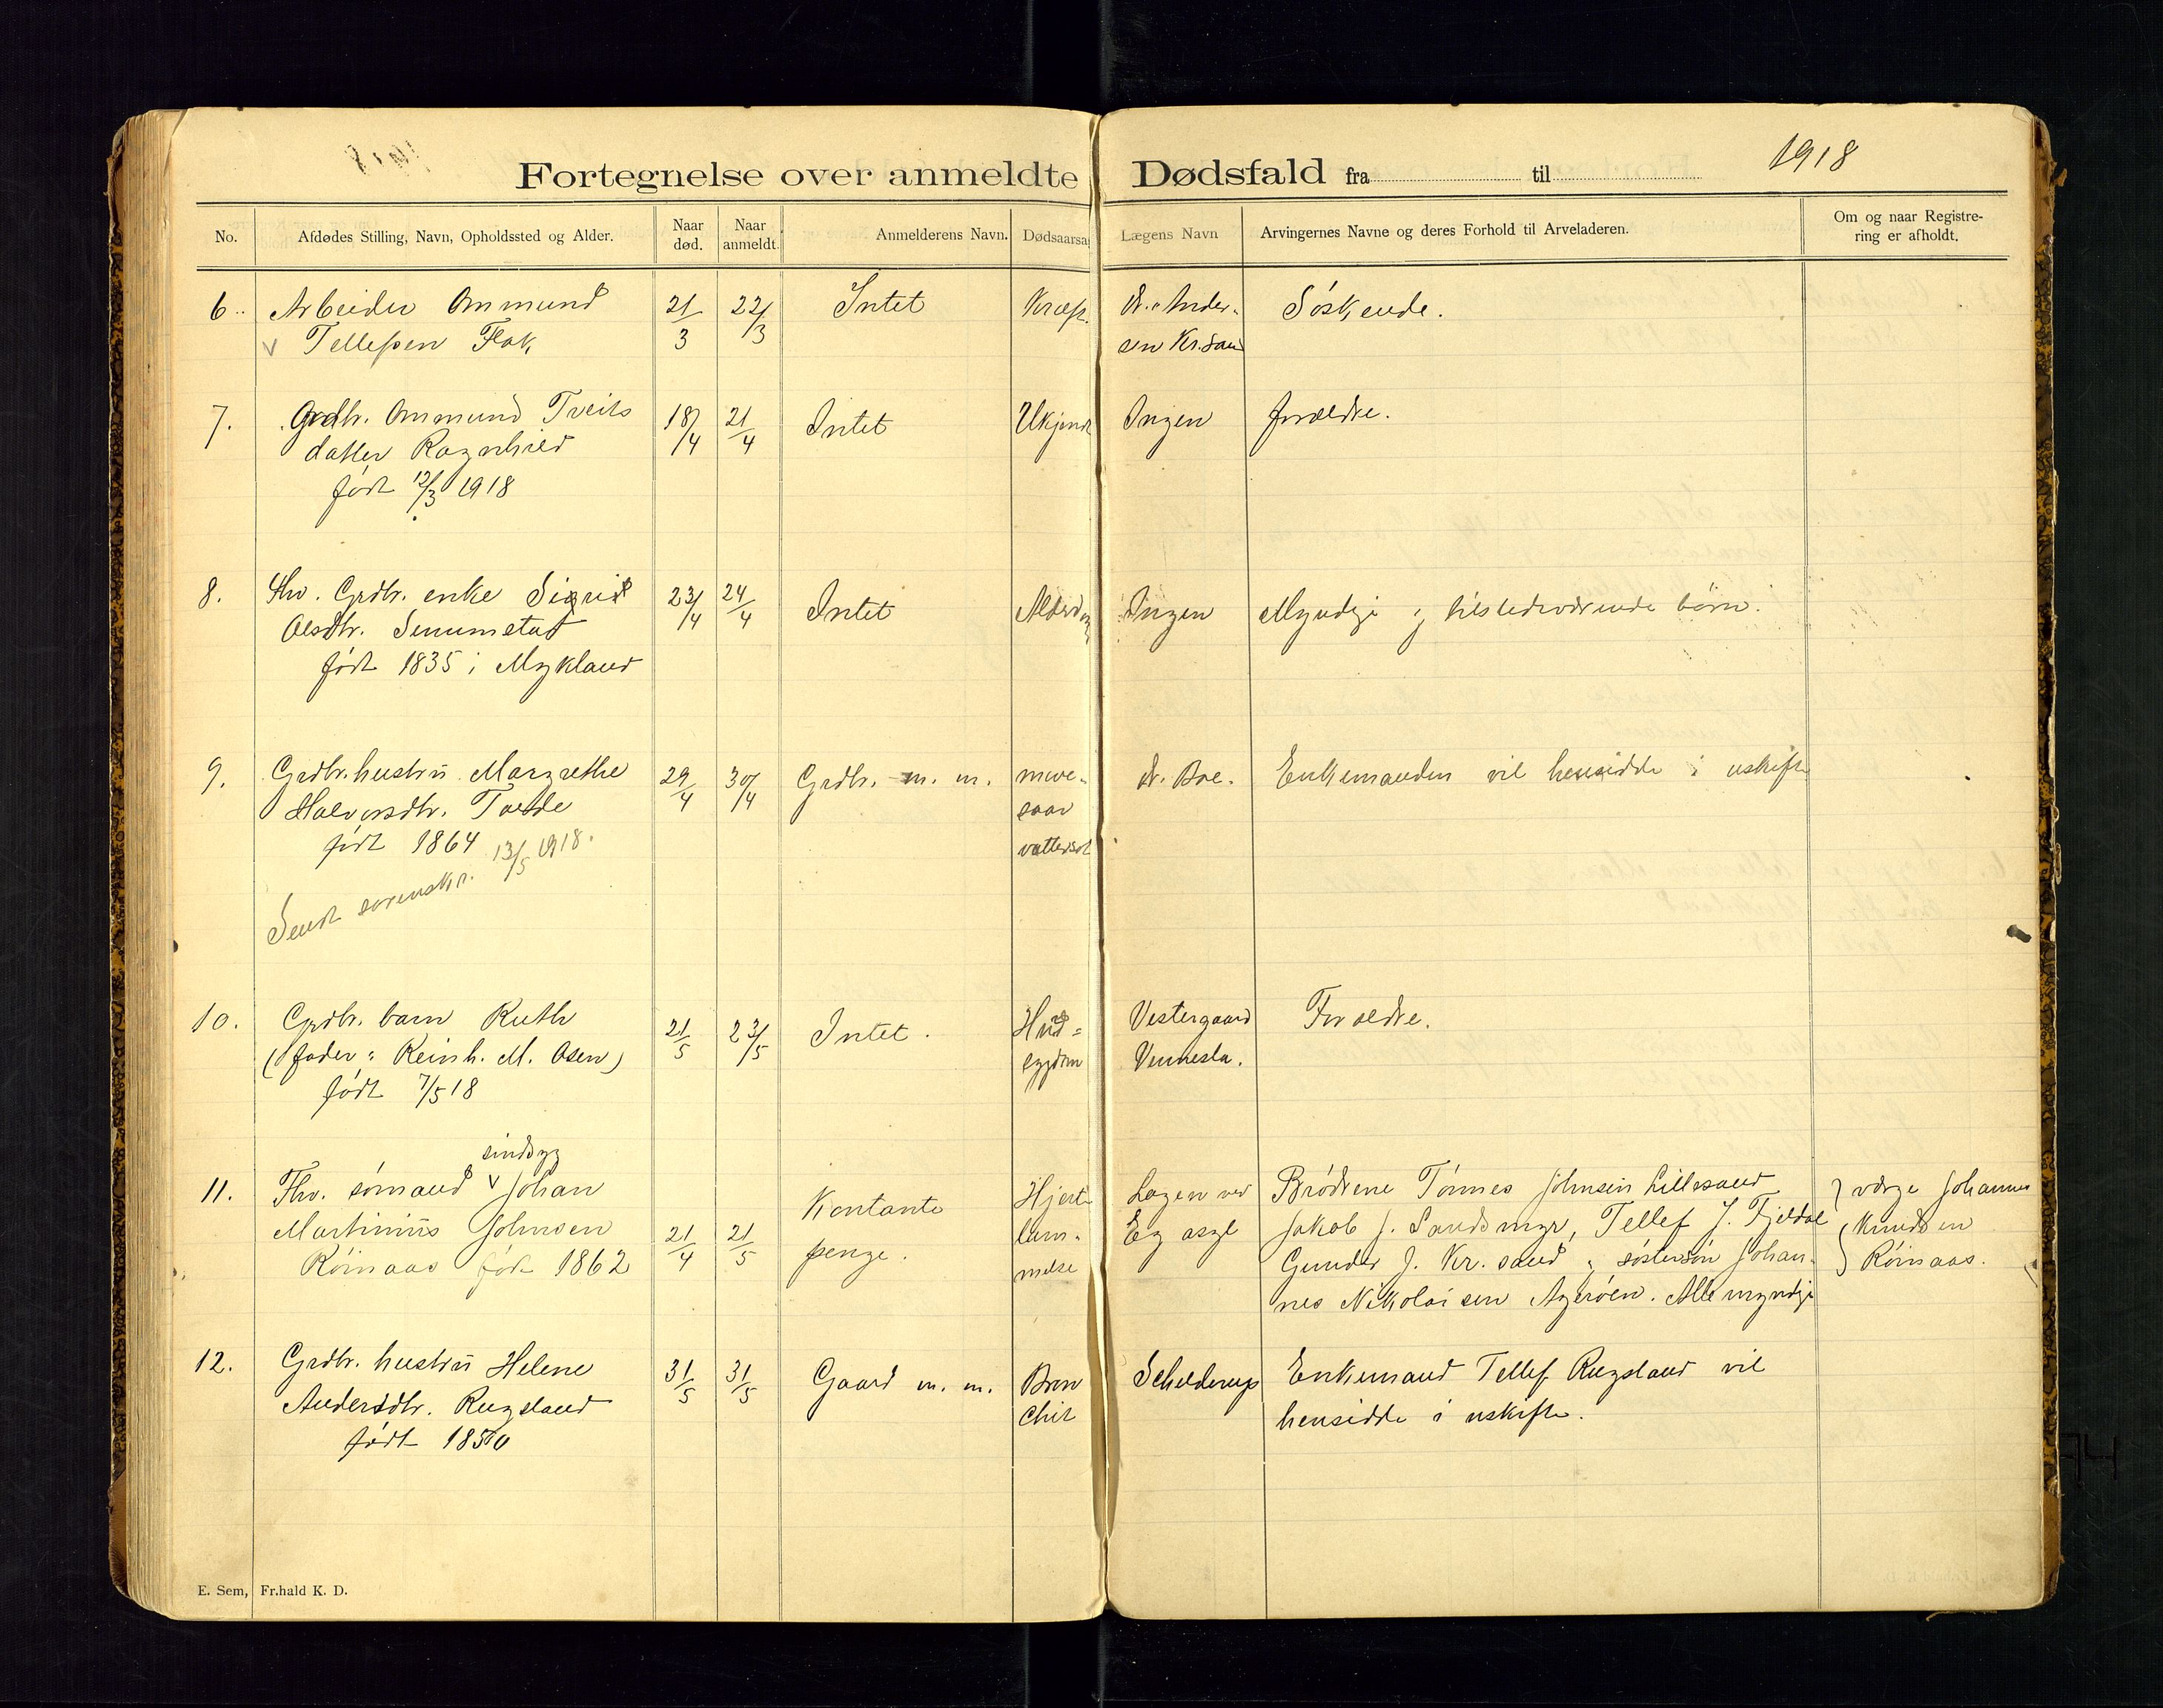 1918
Fortegnelse over anmeldte Dødsfald fra til
No.
Afdødes Stilling, Navn, Opholdssted og Alder.
Naar død.
Naar anmeldt.
Anmelderens Navn.
Dødsaarsa
Lægens Navn
Arvingernes Navne og deres Forhold til Arveladeren.
Om og naar Registre-
ring er afholdt.
6. Arbeider Ommund 21/3 22/3 Intet Kræft. Dr. Ander-
Tellefsen Flak sen Kr.san Søskende.
7. Grdbr. Ommund Tveits 18/4 21/4 Intet Ukjendt Ingen forældre.
datter Ragnhild
født 12/3 1918
8. Fhv. Grdbr. enke Sigrid 23/4 24/4 Intet Alderdom Ingen Myndige og tilstedeværende børn.
Olsdtr. Senumstad
født 1835 i Mykland
9. Grdbr. hustru Margrethe 29/4 30/4 Grdbr. m. m. mave- Dr. Boe. Enkemanden vil hensidde i uskifte
Halvorsdtr. Tveide saar
født 1864 vattersot
Sendt sorenskr. 13/5 1918.
10. Grdbr. barn Ruth 21/5 23/5 Intet. Hud- Vestergaard Forældre.
(fader: Reinh. M. Osen) sygdom Vennesla.
født 7/5 18
sindsyg
11. Fhv. sømand v Johan Kontante Hjerte Lægen ved Brødrene Tønnes Johnsen Lillesand } værge Johannes
Martinius Johnsen 21/4 21/5 penge. lam- Eg asyl Jakob J. Sandsmyr, Tellef J. Fjeldal Knudsen
Røinaas født 1862 melse Gunder J. Kr.sand og søstersøn Johan- Røinaas.
nes Nikolaisen Agerøen. Alle myndige
12. Grdbr. hustru Helene 31/5 31/5 Gaard m. m. Bron Schelderup Enkemand Tellef Rugsland vil
Andersdtr. Rugsland chit hensidde i uskifte.
født 1850
E. Sem, Fr.hald K. D.